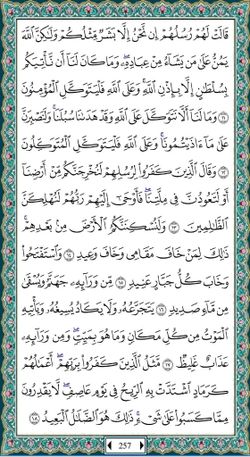 قَالَتْ لَهُمْ رُسُلُهُمْ إِن نَّحْنُ إِلَّا بَشَرٌ مِّثْلُكُمْ وَلَٰكِنَّ ٱللَّهَ
يَمُنُّ عَلَىٰ مَن يَشَآءُ مِنْ عِبَادِهِۦ ۖ وَمَا كَانَ لَنَآ أَن نَّأْتِيَكُم
بِسُلْطَٰنٍ إِلَّا بِإِذْنِ ٱللَّهِ ۚ وَعَلَى ٱللَّهِ فَلْيَتَوَكَّلِ ٱلْمُؤْمِنُونَ
١١ وَمَا لَنَآ أَلَّا نَتَوَكَّلَ عَلَى ٱللَّهِ وَقَدْ هَدَىٰنَا سُبُلَنَا ۚ وَلَنَصْبِرَنَّ
عَلَىٰ مَآ ءَاذَيْتُمُونَا ۚ وَعَلَى ٱللَّهِ فَلْيَتَوَكَّلِ ٱلْمُتَوَكِّلُونَ
١٢ وَقَالَ ٱلَّذِينَ كَفَرُوا۟ لِرُسُلِهِمْ لَنُخْرِجَنَّكُم مِّنْ أَرْضِنَآ
أَوْ لَتَعُودُنَّ فِى مِلَّتِنَا ۖ فَأَوْحَىٰٓ إِلَيْهِمْ رَبُّهُمْ لَنُهْلِكَنَّ
ٱلظَّٰلِمِينَ ١٣ وَلَنُسْكِنَنَّكُمُ ٱلْأَرْضَ مِنۢ بَعْدِهِمْ ۚ
ذَٰلِكَ لِمَنْ خَافَ مَقَامِى وَخَافَ وَعِيدِ ١٤ وَٱسْتَفْتَحُوا۟
وَخَابَ كُلُّ جَبَّارٍ عَنِيدٍ ١٥ مِّن وَرَآئِهِۦ جَهَنَّمُ وَيُسْقَىٰ
مِن مَّآءٍ صَدِيدٍ ١٦ يَتَجَرَّعُهُۥ وَلَا يَكَادُ يُسِيغُهُۥ وَيَأْتِيهِ
ٱلْمَوْتُ مِن كُلِّ مَكَانٍ وَمَا هُوَ بِمَيِّتٍ ۖ وَمِن وَرَآئِهِۦ
عَذَابٌ غَلِيظٌ ١٧ مَّثَلُ ٱلَّذِينَ كَفَرُوا۟ بِرَبِّهِمْ ۖ أَعْمَٰلُهُمْ
كَرَمَادٍ ٱشْتَدَّتْ بِهِ ٱلرِّيحُ فِى يَوْمٍ عَاصِفٍ ۖ لَّا يَقْدِرُونَ
مِمَّا كَسَبُوا۟ عَلَىٰ شَىْءٍ ۚ ذَٰلِكَ هُوَ ٱلضَّلَٰلُ ٱلْبَعِيدُ ١٨
257